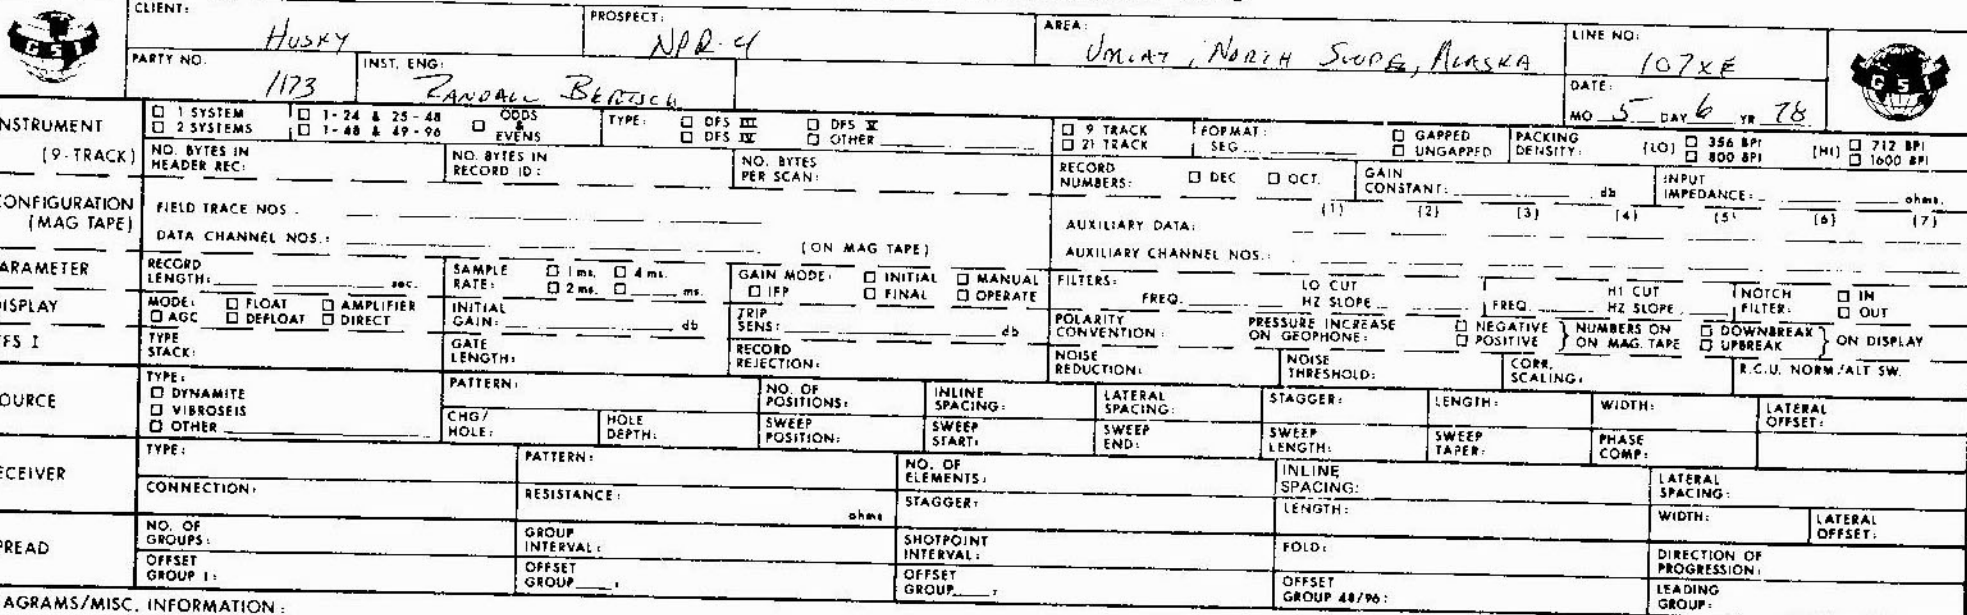 CLIENT: Husky PROSPECT: NPR-4 AREA: Umiat, North Slope, Alaska LINE NO: 107XE
GSI GSI
PARTY NO. 1173 INST. ENG: Randall Bertsch DATE:
MO 5 DAY 6 YR 78
NSTRUMENT □ 1 SYSTEM □ 1-24 & 25-48 □ ODDS & EVENS TYPE: □ DFS III □ DFS V □ 9 TRACK FORMAT: □ GAPPED PACKING DENSITY: (LO) □ 356 BPI (HI) □ 712 BPI
□ 2 SYSTEMS □ 1-48 & 49-96 □ DFS IV □ OTHER □ 21 TRACK SEG □ UNGAPPED □ 800 BPI □ 1600 BPI
(9-TRACK) NO. BYTES IN HEADER REC: NO. BYTES IN RECORD ID: NO. BYTES PER SCAN: RECORD NUMBERS: □ DEC □ OCT. GAIN CONSTANT: db INPUT IMPEDANCE: ohms.
ONFIGURATION FIELD TRACE NOS. AUXILIARY DATA: (1) (2) (3) (4) (5) (6) (7)
(MAG TAPE) DATA CHANNEL NOS.: (ON MAG TAPE) AUXILIARY CHANNEL NOS.:
ARAMETER RECORD LENGTH: sec. SAMPLE RATE: □ 1 ms. □ 4 ms. □ 2 ms. □ ms. GAIN MODE: □ INITIAL □ MANUAL □ IFP □ FINAL □ OPERATE FILTERS: FREQ. LO CUT HZ SLOPE FREQ HI CUT HZ SLOPE NOTCH FILTER: □ IN □ OUT
ISPLAY MODE: □ FLOAT □ AMPLIFIER □ AGC □ DEFLOAT □ DIRECT INITIAL GAIN: db TRIP SENS: db POLARITY CONVENTION: PRESSURE INCREASE ON GEOPHONE: □ NEGATIVE □ POSITIVE } NUMBERS ON ON MAG. TAPE □ DOWNBREAK □ UPBREAK } ON DISPLAY
FS I TYPE STACK: GATE LENGTH: RECORD REJECTION: NOISE REDUCTION: NOISE THRESHOLD: CORR. SCALING: R.C.U. NORM/ALT SW.
OURCE TYPE: □ DYNAMITE □ VIBROSEIS □ OTHER PATTERN: NO. OF POSITIONS: INLINE SPACING: LATERAL SPACING: STAGGER: LENGTH: WIDTH: LATERAL OFFSET:
CHG/HOLE: HOLE DEPTH: SWEEP POSITION: SWEEP START: SWEEP END: SWEEP LENGTH: SWEEP TAPER: PHASE COMP:
ECEIVER TYPE: PATTERN: NO. OF ELEMENTS: INLINE SPACING: LATERAL SPACING:
CONNECTION: RESISTANCE: ohms STAGGER: LENGTH: WIDTH: LATERAL OFFSET:
PREAD NO. OF GROUPS: GROUP INTERVAL: SHOTPOINT INTERVAL: FOLD: DIRECTION OF PROGRESSION:
OFFSET GROUP 1: OFFSET GROUP : OFFSET GROUP : OFFSET GROUP 48/96: LEADING GROUP:
AGRAMS/MISC. INFORMATION: